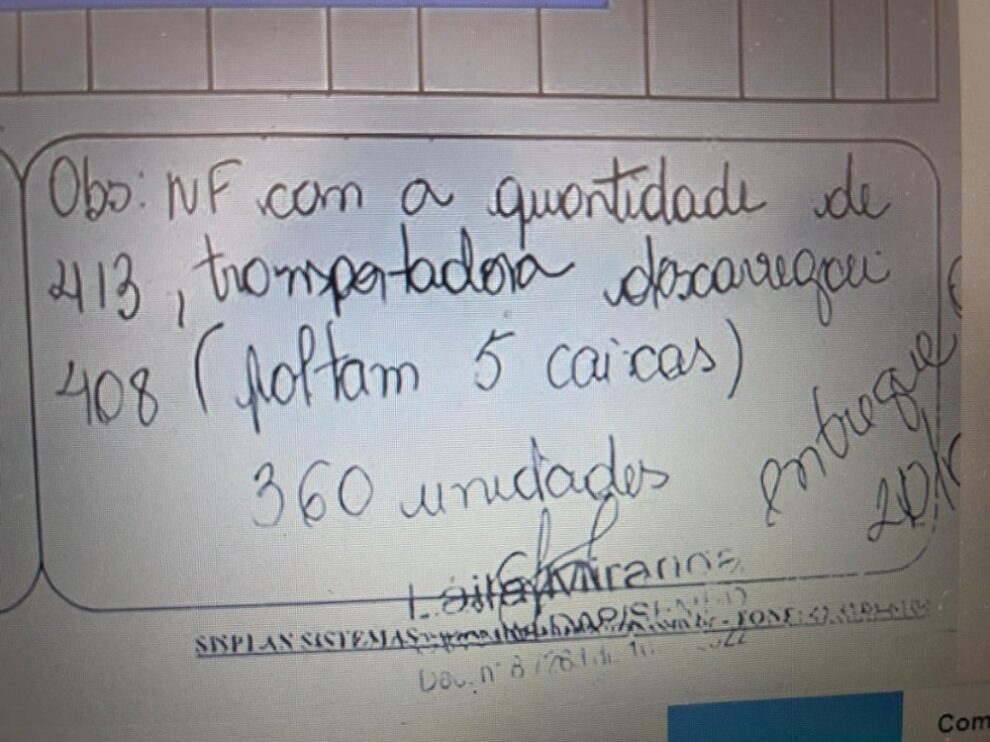 Obs: NF com a quantidade de
413, transportadora descarregou
408 (faltam 5 caixas)
360 unidades
entregue
20/
SISPLAN SISTEMAS
Com